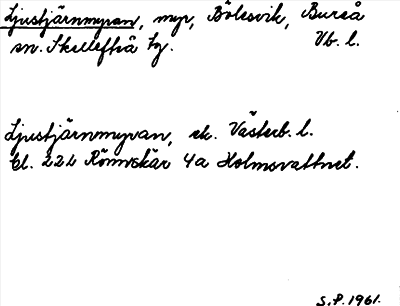 Ljustjärnmyran, myr, Bölesvik, Bureå
sn. Skellefteå tg. Vb. l.
Ljustjärnmyran, ek. Västerb. l.
Bl. 22L Rönnskär 4a Holmsvattnet.
S.P. 1961.